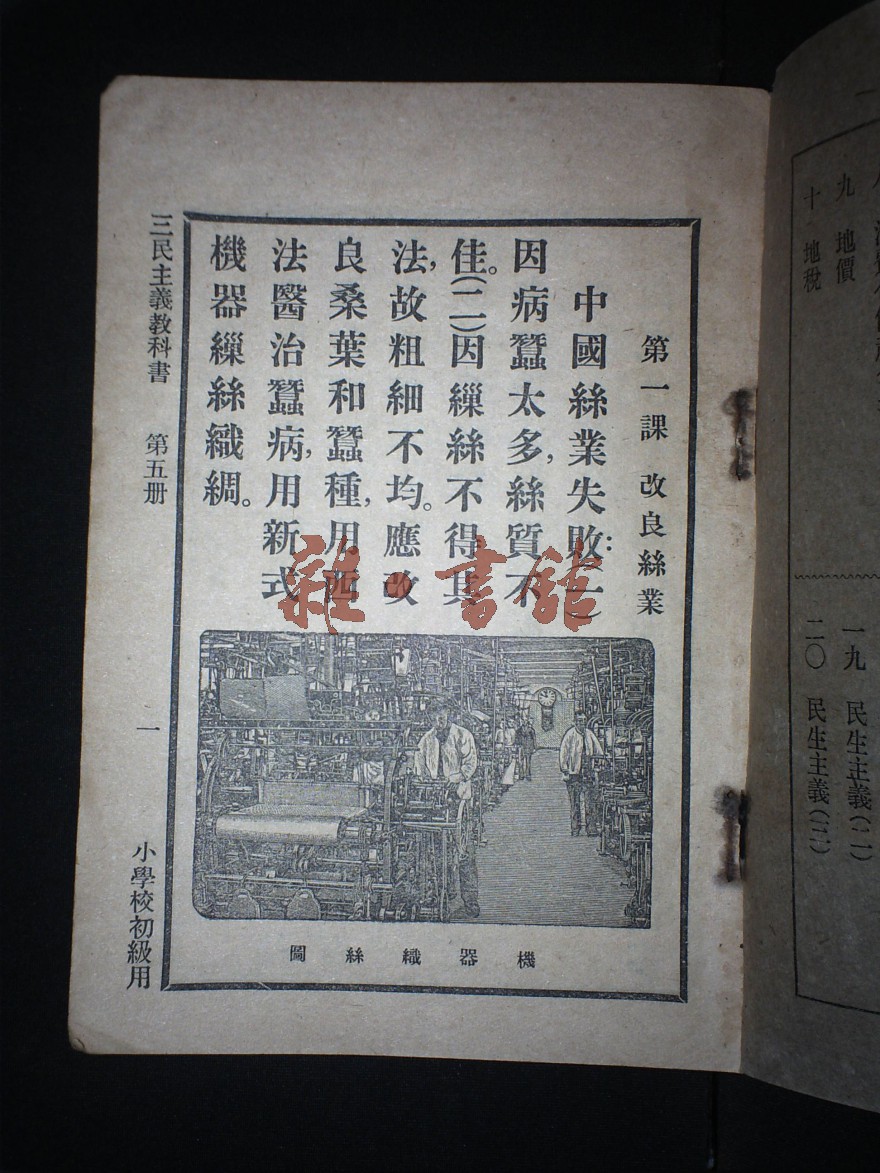 九 地價
十 地稅
一九 民生主義(二)
二〇 民生主義(三)
第一課 改良絲業
中國絲業失敗:(一)
因病蠶太多,絲質不
佳。(二)因繅絲不得其
法,故粗細不均。應改
良桑葉和蠶種,用西
法醫治蠶病,用新式
機器繅絲織綢。
機器織絲圖
三民主義教科書 第五册 一 小學校初級用
雜·書館